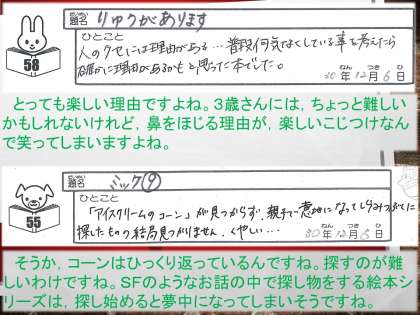 題名 りゆうがあります
ひとこと
人のクセには理由がある…普段何気なくしている事を考えたら
確かに理由があるかもと思った本でした。
30年12月6日
58
とっても楽しい理由ですよね。3歳さんには，ちょっと難しい
かもしれないけれど，鼻をほじる理由が，楽しいこじつけなん
で笑ってしまいますよね。
題名 ミック⑨
ひとこと
「アイスクリームのコーン」が見つからず、親子で意地になってしらみつぶしに
探したものの結局見つかりません。くやしい…
30年12月6日
55
そうか，コーンはひっくり返っているんですね。探すのが難し
いわけですね。SFのようなお話の中で探し物をする絵本シ
リーズは，探し始めると夢中になってしまいそうですね。